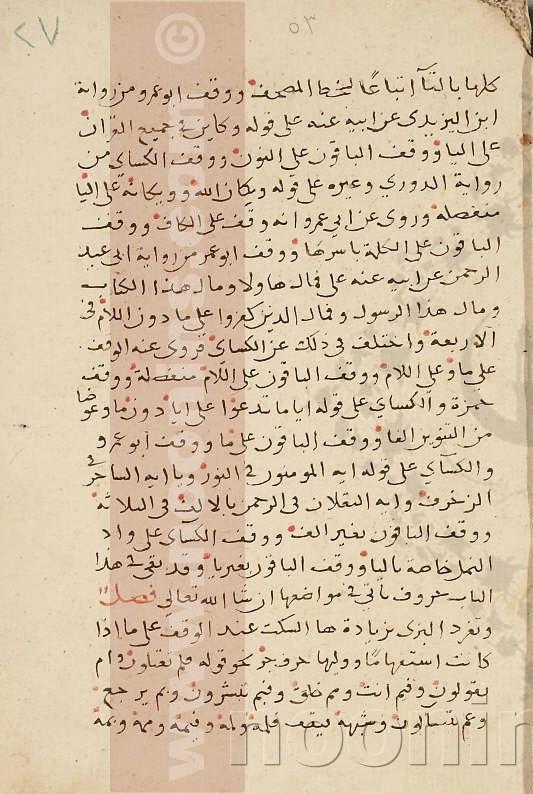 ٢٧
٥٣
كلها بالتآ اتباعًا لخط المصحف ووقف ابو عمرو من رواية
ابن اليزيدى عن ابيه عنه على قوله وكاين فى جميع القران
على اليا ووقف الباقون على النون ووقف الكساى من
رواية الدوري وغيره على قوله ويكان الله وويكانه على اليا
منفصلة وروى عن ابي عمرو انه وقف على الكاف ووقف
الباقون على الكلمة باسرها ووقف ابو عمرو من رواية ابى عبد
الرحمن عن ابيه عنه على فمال هاولا ومال هذا الكتاب
ومال هذا الرسول وفمال الذين كفروا على ما دون اللام فى
الاربعة واختلف فى ذلك عن الكساى فروى عنه الوقف
على ما وعلى اللام ووقف الباقون على اللام منفصلة ووقف
حمزة والكساي على قوله اياما تدعوا على ايا دون ما وعوضا
من التنوين الفا ووقف الباقون على ما ووقف ابو عمرو
والكسآي على قوله ايه المومنون فى النور ويا ايه الساحر فى
الزخرف وايه الثقلان فى الرحمن بالالف فى الثلاثة
ووقف الباقون بغير الف ووقف الكساى على واد
النمل خاصة باليا ووقف الباقون بغير يا وقد بقى فى هذا
الباب حروف تأتي فى مواضعها ان شا الله تعالى فصل
وتفرد البزى بزيادة ها السكت عند الوقف على ما اذا
كانت استفهامًا ووليها حرف جر نحو قوله فلم تقتلون ولم
يقولون وفيم انت ومم خلق وفبم تبشرون وبم يرجع
وعم يتسالون وشبهه فيقف فلمه ولمه وفيمه وممه وبمه
www.noormags.com ©
noorin